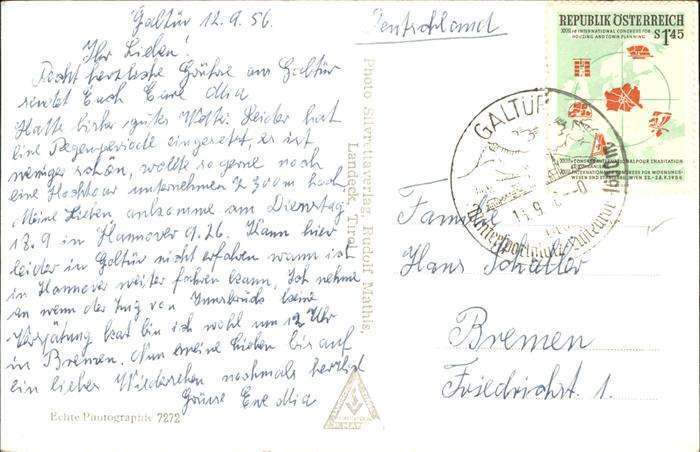 Galtür 12.9.56.
Ihr Lieben!
Recht herzliche Grüße aus Galtür
sendet Euch Eure Mia
Hatte bisher gutes Wetter. Leider hat
eine Regenperiode eingesetzt, es ist
weniger schön, wollte so gerne noch
eine Hochtour unternehmen 2300 m hoch
Meine Lieben ankomme am Dienstag
18.9 in Hannover 9.26. Kann hier
leider in Galtür nicht erfahren wann ich
in Hannover weiter fahren kann. Ich nehme
an wenn der Zug von Innsbruck keine
Verspätung hat bin ich wohl um 12 Uhr
in Bremen. Nun meine Lieben bis auf
ein liebes Wiedersehen nochmals herzlich
Grüsse Eure Mia
Echte Photographie 7272
Photo Silvrettaverlag Rudolf Mathis
Landeck, Tirol
Deutschland
REPUBLIK ÖSTERREICH
XXIIIrd INTERNATIONAL CONGRESS FOR
HOUSING AND TOWN PLANNING
S 1.45
WESEN UND STÄDTEBAU WIEN 22.-28.VII.1956
GALTÜR
Familie
Hans Schäller
Bremen
Friedrichst. 1.